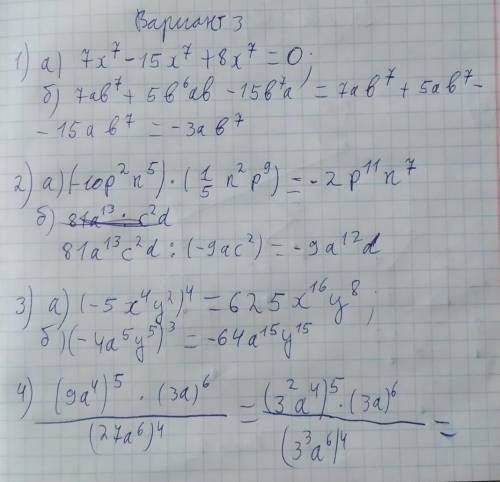 Вариант 3
1) а) 7x⁷ - 15x⁷ + 8x⁷ = 0;
б) 7ab⁷ + 5b⁶ab - 15b⁷a = 7ab⁷ + 5ab⁷ -
- 15ab⁷ = -3ab⁷
2) а) (-10p²n⁵) · (1/5 n²p⁹) = -2p¹¹n⁷
б) 81a¹³ · c²d
81a¹³c²d : (-9ac²) = -9a¹²d
3) а) (-5x⁴y²)⁴ = 625x¹⁶y⁸;
б) (-4a⁵y⁵)³ = -64a¹⁵y¹⁵
4) ((9a⁴)⁵ · (3a)⁶)/(27a⁶)⁴ = ((3²a⁴)⁵ · (3a)⁶)/(3³a⁶)⁴ =